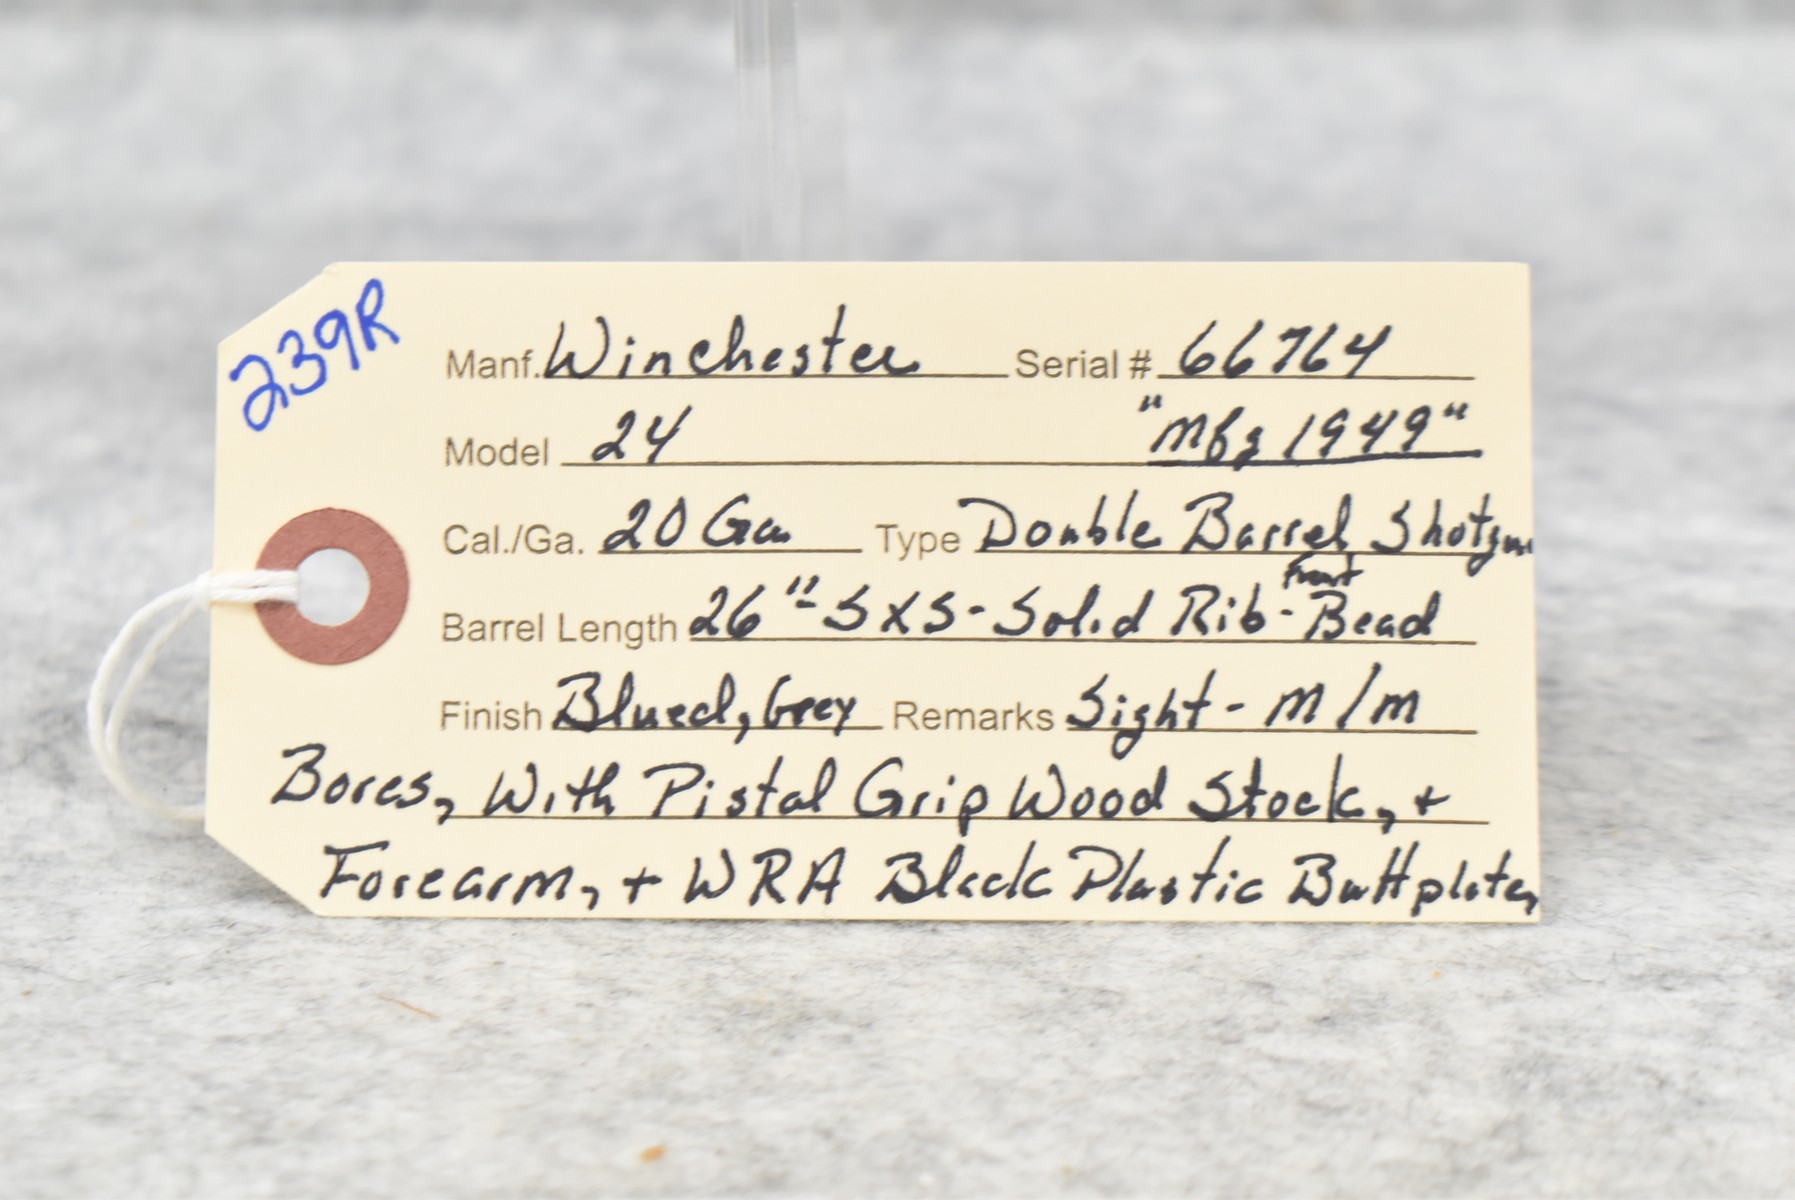 239R
Manf. Winchester Serial # 66764
Model 24 "Mfg 1949"
Cal./Ga. 20 Ga Type Double Barrel Shotgun
Front
Barrel Length 26"-SXS-Solid Rib-Bead
Finish Blued, Grey Remarks Sight - M/M
Bores, With Pistal Grip Wood Stock, +
Forearm, + WRA Black Plastic Buttplate,